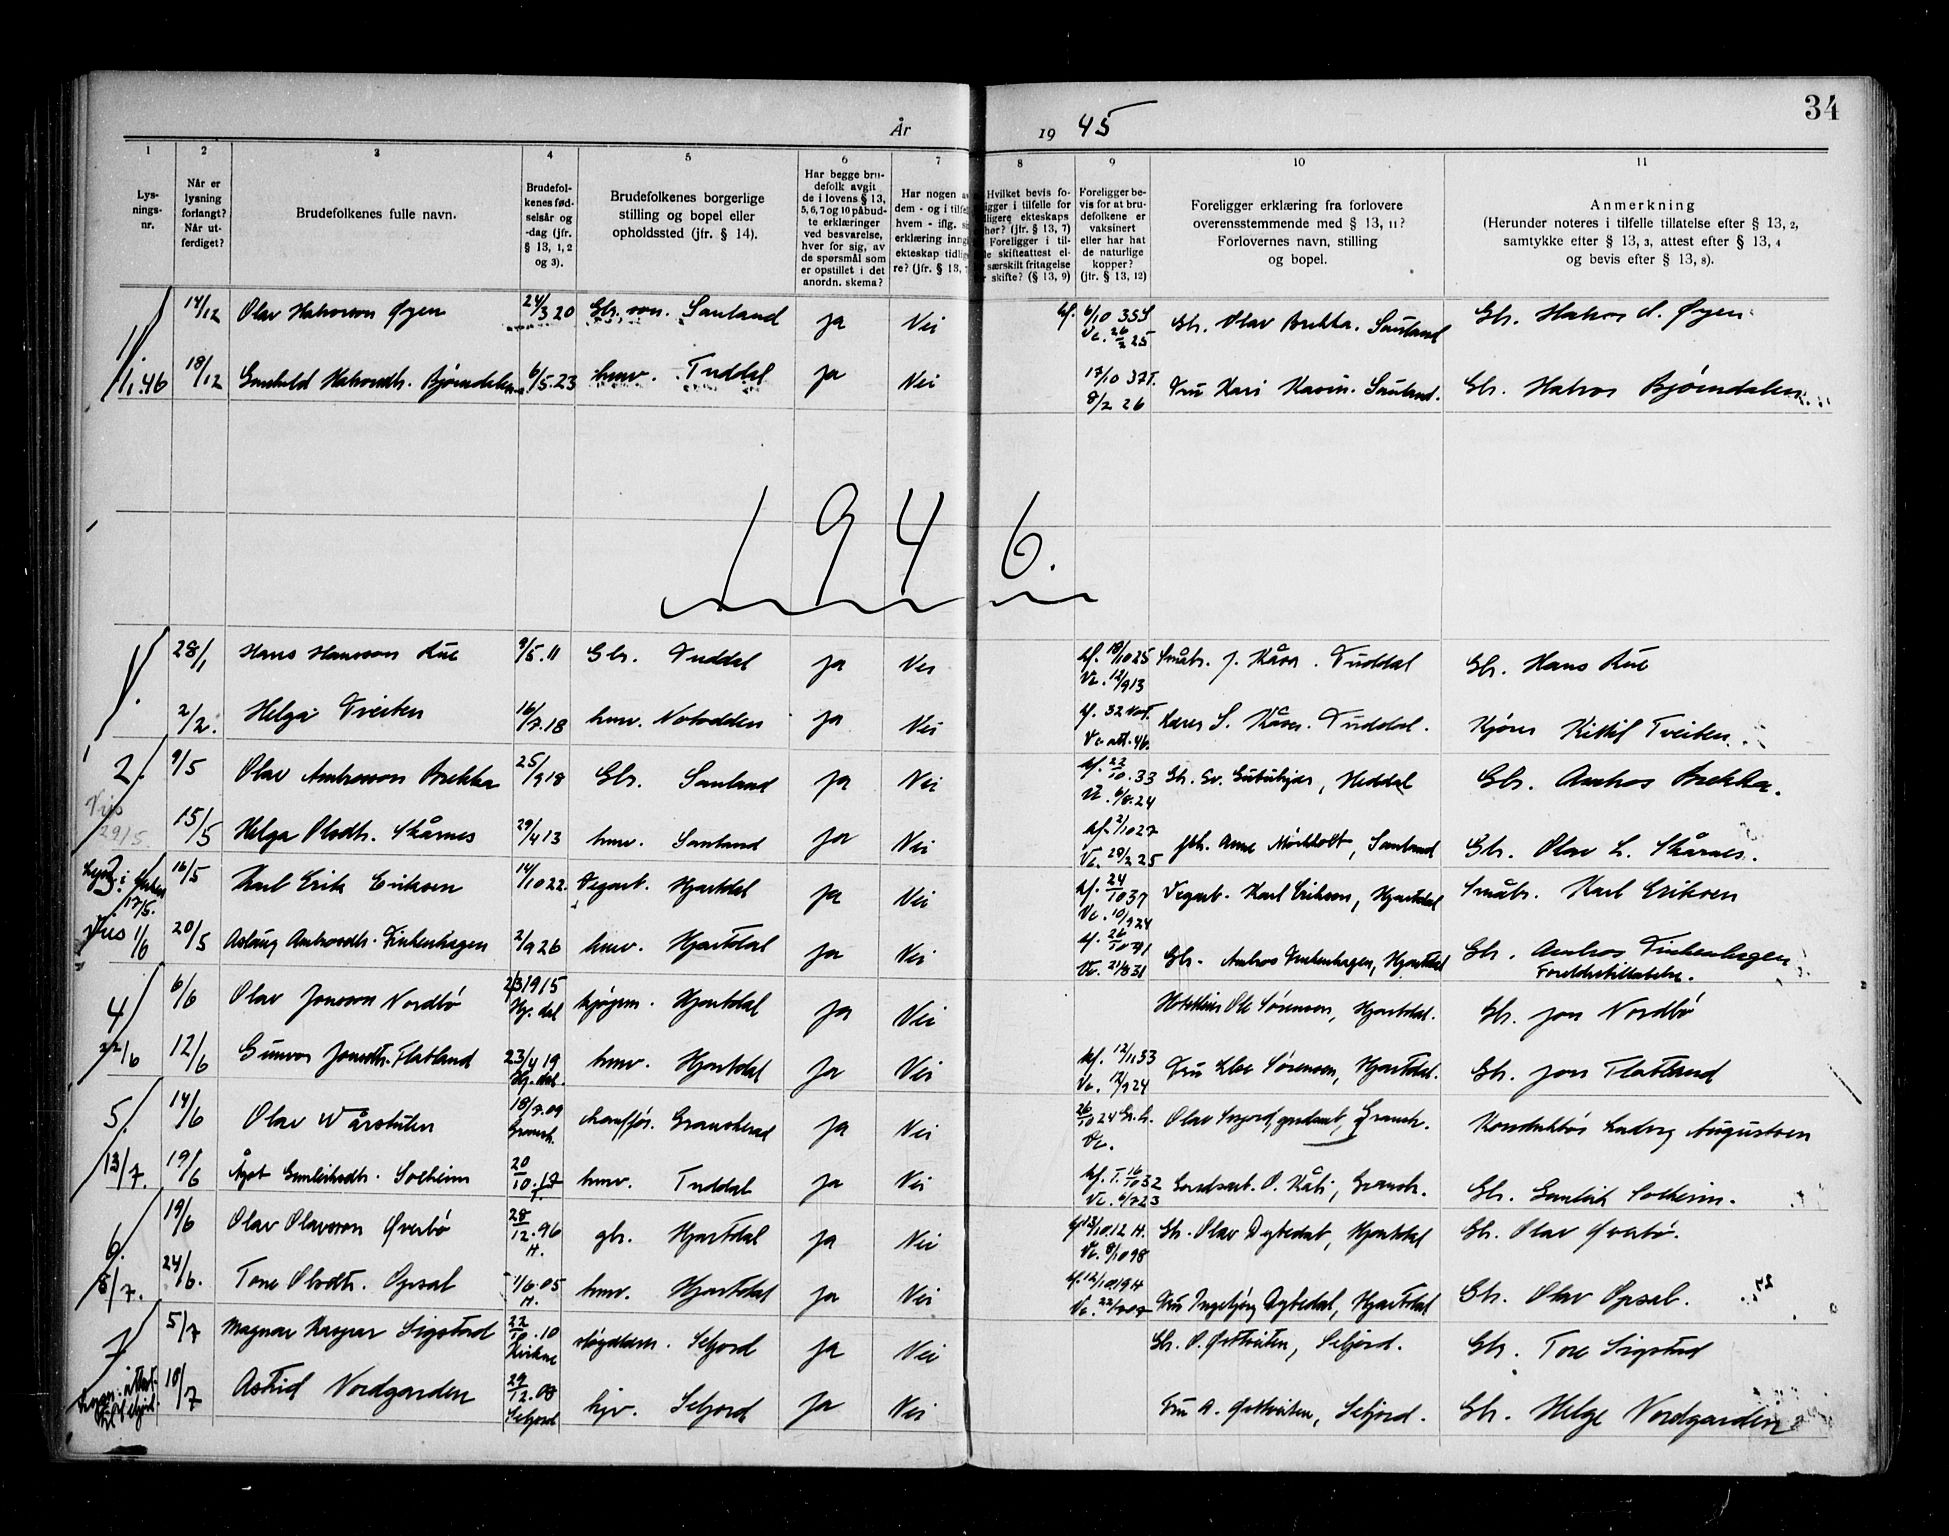 34
År 19 45
1 2 3 4 5 6 7 8 9 10 11
Lys-
nings-
nr.
Når er
lysning
forlangt?
Når ut-
ferdiget?
Brudefolkenes fulle navn.
Brudefol-
kenes fød-
selsår og
-dag (jfr.
§ 13, 1, 2
og 3).
Brudefolkenes borgerlige
stilling og bopel eller
opholdssted (jfr. § 14).
Har begge bru-
defolk avgit
de i lovens § 13,
5, 6, 7 og 10 påbud-
te erklæringer
ved besvarelse,
hver for sig, av
de spørsmål som
er opstillet i det
anordn. skema?
Har nogen a
dem - og i tilfe
hvem - iflg. si
erklæring inng
ekteskap tidlig
re? (jfr. § 13,
Hvilket bevis fo-
igger i tilfelle for
dligere ekteskaps
hør? (jfr. § 13, 7)
Foreligger i til-
le skifteattest el-
særskilt fritagelse
skifte? (§ 13, 9)
Foreligger be-
vis for at bru-
defolkene er
vaksinert
eller har hat
de naturlige
kopper?
(jfr. § 13, 12)
Foreligger erklæring fra forlovere
overensstemmende med § 13, 11?
Forlovernes navn, stilling
og bopel.
Anmerkning
(Herunder noteres i tilfelle tillatelse efter § 13, 2,
samtykke efter § 13, 3, attest efter § 13, 4
og bevis efter § 13, 8).
14/12 Olav Halvorson Øyen 24/3 20 Gbr. son. Sauland ja Nei kf. 6/10 35 S Vc. 26/2 25 Gb. Olav Brekka. Sauland Gb. Halvor d. Øyen
1/1.46 18/12 Gunhild Halvordtr. Bjørndalen 6/5.23 hmv. Tuddal ja Nei 17/10 37 T. 8/2 26 Fru Kari Sauland. Gb. Halvor Bjørndalen
1946.
1. 28/1 Hans Hansson Rue 9/5.11 Gbr. Tuddal ja Nei kf. 18/10 25 Vc. 12/9 13 Småbr. J. Kåsa. Tuddal Gb. Hans Rue
2/2. Helga Tveiten 16/7.18 hmv. Notodden ja Nei kf. 32 Not. Vc att. 46. S. Kåsa. Tuddal. Kjører Kittil Tveiten
2. 9/5 Olav Brekka 25/9 18 Gbr. Sauland ja Nei kf. 22/10.33 Vc. 6/8.24 Gb. Sv. , Heddal Gbr. Brekka.
Vis 29/5 15/5 Helga Olsdtr. Skårnes 29/4 13 hmv. Sauland ja Nei kf. 2/10 27 Vc. 29/2 25 Anne Mørkholt, Sauland Gb. Olav L. Skårnes.
3. 17/5. 16/5 Karl Erik Eriksen 14/10 22. Vegarb. Hjartdal ja Nei kf. 24/10 37 Vc. 10/9 24 Vegarb. Karl Eriksen, Hjartdal Småbr. Karl Eriksen
Vis 1/6 20/5 Aslaug Finkenhagen 2/9 26 hmv. Hjartdal ja Nei kf. 26/10 41 Vc. 21/8 31 Gbr. Finkenhagen, Hjartdal Gb. Finkenhagen
Foreldretillatelse.
4 6/6 Olav Jonsson Nordbø 2/3 1915 Hj. dal Hjartdal ja Nei Ole Sørensen, Hjartdal. Gb. Jon Nordbø
22/6 12/6 Gunvor Jonsdtr. Flatland 23/4 19 Hj. dal. hmv. Hjartdal ja Nei kf. 12/11 33 Vc. 12/9 24 Fru Else Sørensen, Hjartdal. Gb. Jon Flatland
5. 14/6 Olav Wårstulen 18/7.09 Gransh. chauffør. Gransherad ja Nei 26/10 24 Gr.h. Vc. Olav , Gransh. Konduktør Ludvig Augustsen
13/7. 19/6 Ågot Gunleiksdtr. Solheim 20/10.17 T hmv. Tuddal ja Nei kf. T. 16/10 32 Vc. 6/7 23 O. Kåti, Gransh. Gb. Gunleik Solheim.
6. 19/6 Olav Olavsson Øverbø 28/12.96 H. gbr. Hjartdal ja Nei kf 13/10.12 H. Vc. 8/10 98 Gb. Olav Dybedal, Hjartdal Gb. Olav Øverbø.
8/7. 24/6. Tone Olsdtr. Opsal 1/6.05 H. hmv. Hjartdal ja Nei kf. 12/10 19 H Fru Ingebjørg Dybedal, Hjartdal Gb. Olav Opsal.
7 5/7 Magnar Kasper Sigstad 22/10.10 Seljord ja Nei Gb. O. Øvtveiten, Seljord. Gb. Tore Sigstad
18/7 Astrid Nordgarden 29/12.08 Seljord hjv. Seljord ja Nei Fru A. Øvtveiten, Seljord. Gb. Helge Nordgarden